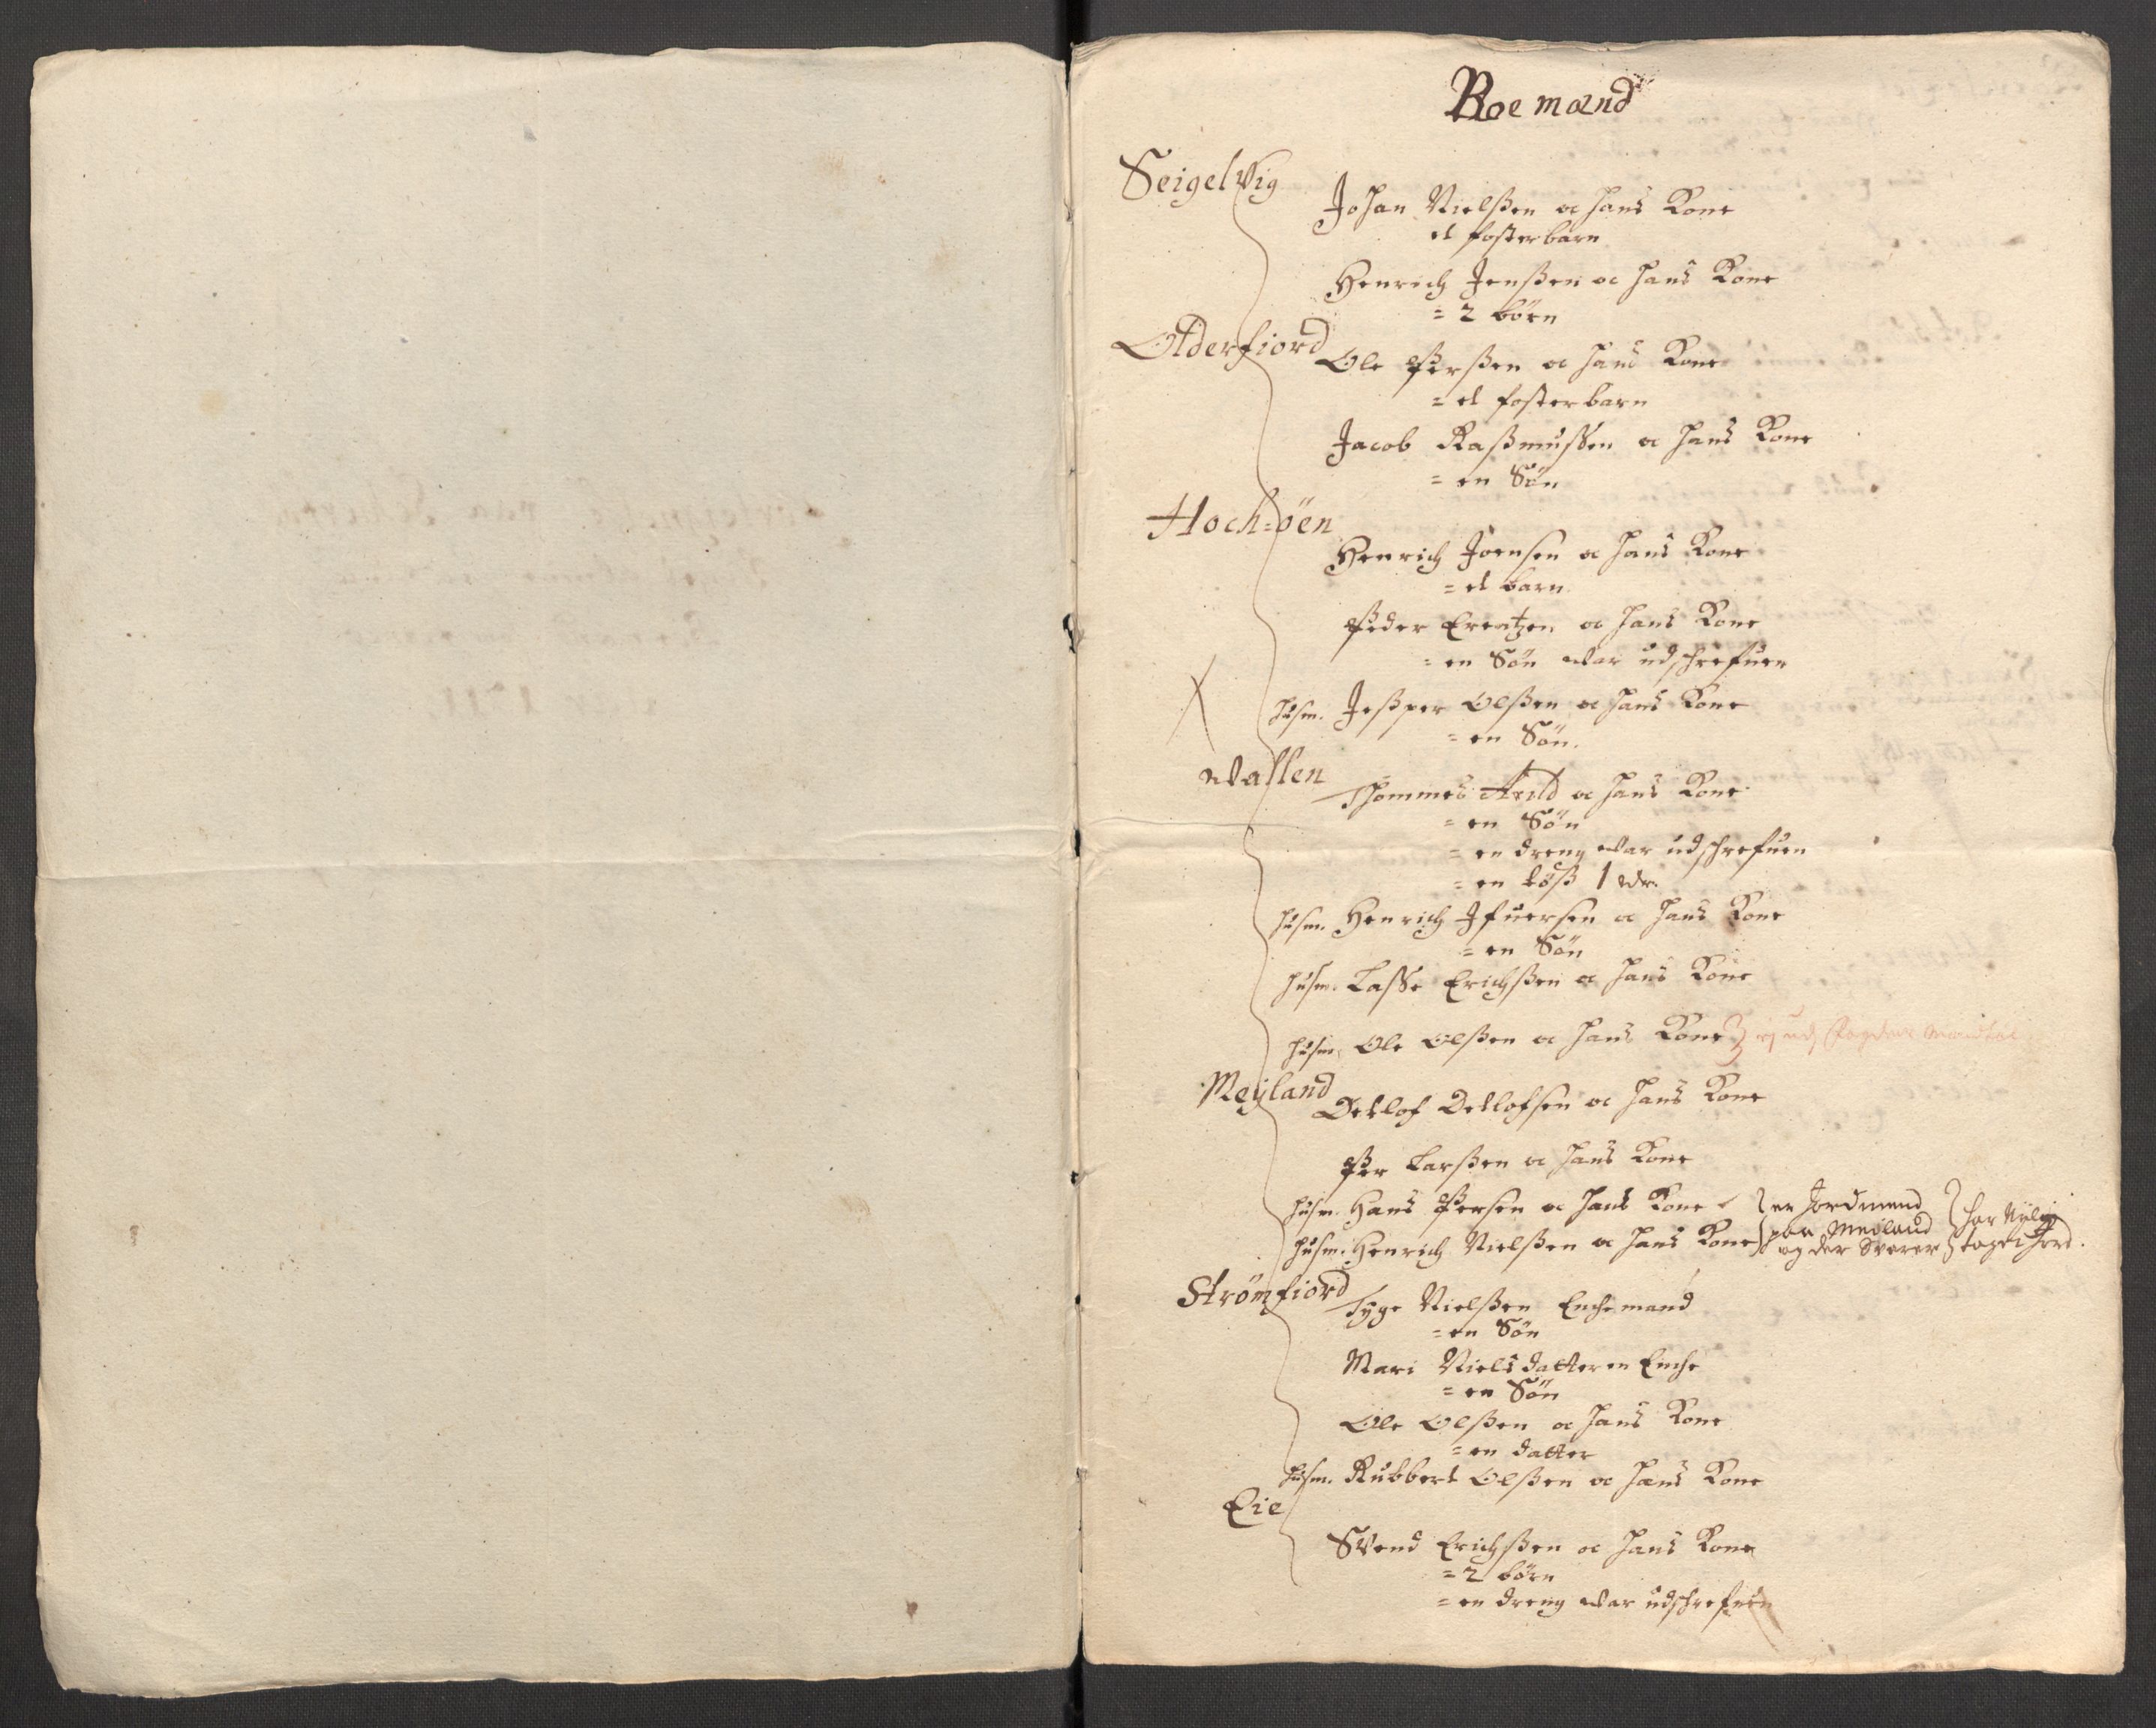 Boe mænd
Seigelvig
Johan Nielßen oc hans Kone
et fosterbarn
Henrich Jenßen oc hans Kone
= 2 börn
Olderfiord
Ole Perßen oc hans Kone
= et fosterbarn
Jacob Raßmußen oc hans Kone
= en Sön
Hoch=öen
Henrich Joensen oc hans Kone
= et barn
Peder Creatzen oc hans Kone
= en Sön war udschrefuen
husm. Jeßper Olßen oc hans Kone
= en Sön.
wallen
Thommes Arild oc hans Kone
= en Sön
= en dreng war udschrefuen
= en töß 1 wdr.
husm. Henrich Jfuersen oc hans Kone
= en Sön
husm. Lasse Erichßen oc hans Kone
husm. Ole Olßen oc hans Kone
Meyland
Detlof Detlofsen oc hans Kone
Per Larßen oc hans Kone
husm. Hans Persen oc hans Kone
er Jordmend
paa Medland
og der Svarer
har Nylig
tagen Jord.
husm. Henrich Nielßen oc hans Kone
Strömfiord
Tyge Nielßen Enchemand
= en Sön
Mari Nielsdatter en Enche
= en Sön
Ole Olßen oc hans Kone
= en datter
husm. Rubbert Olßen oc hans Kone
Eie
Svend Erichßen oc hans Kone
= 2 börn
= en dreng war udschrefuen